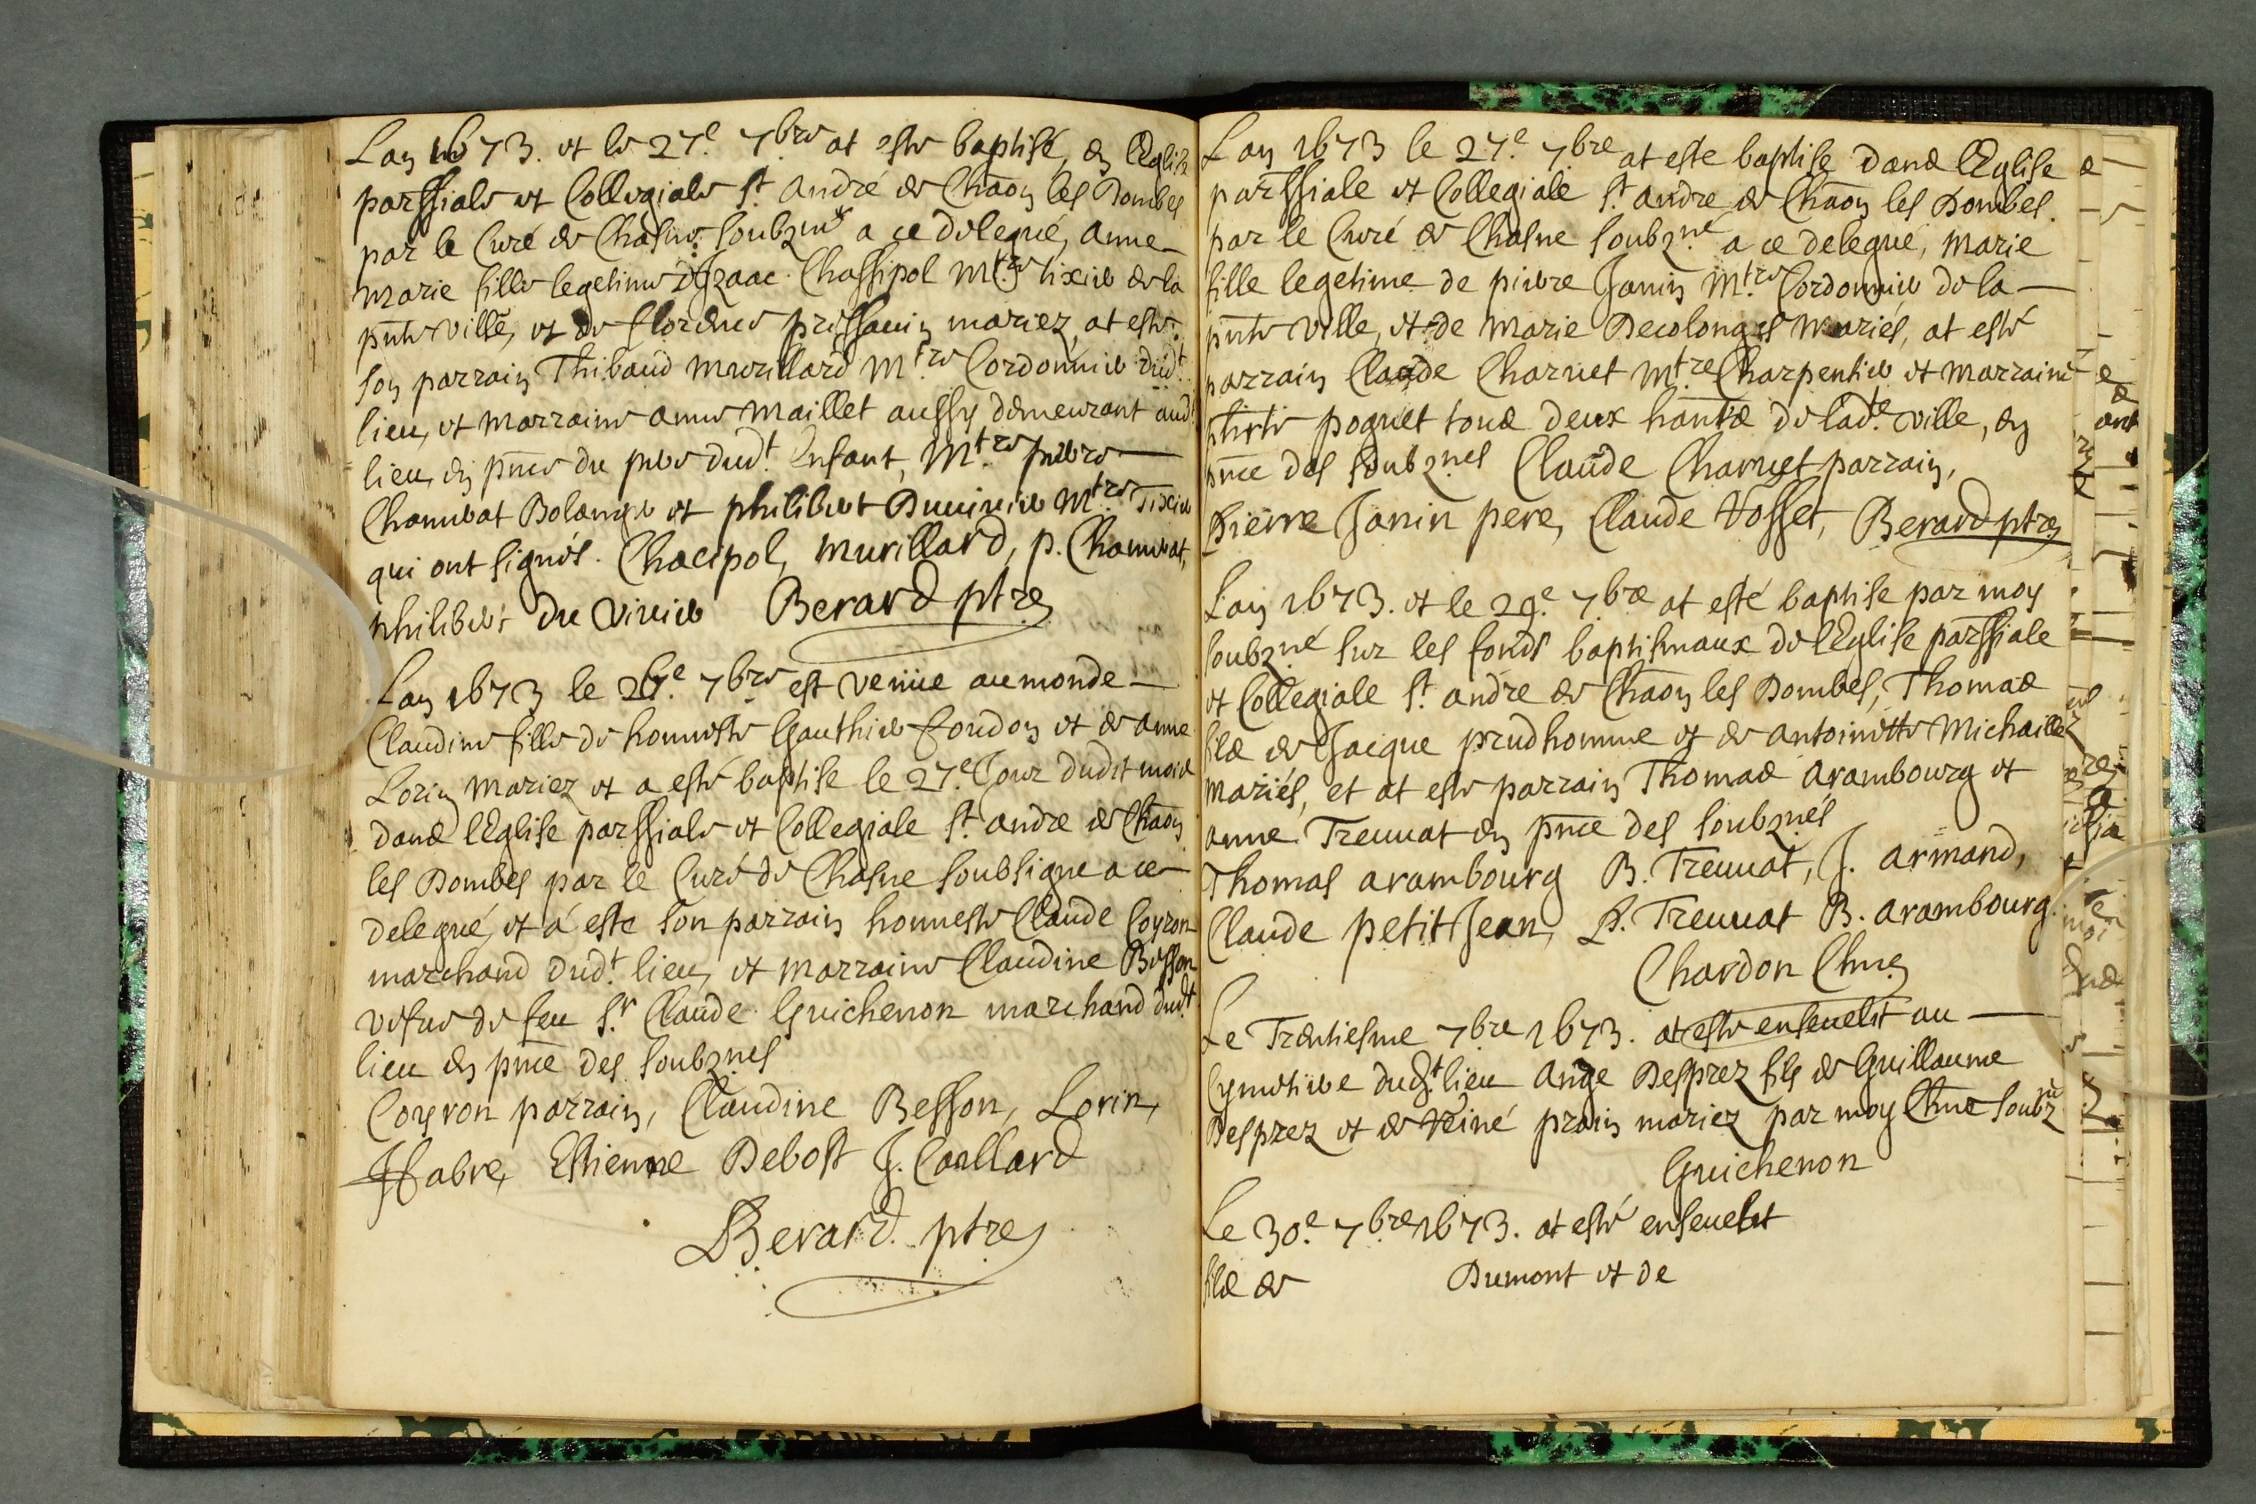 Lan 1673. et le 27.e 7bre at este baptisé, en lEglise
parssiale et Collegiale St. andré de Chaon les Dombes
par le Curé de Chasne soubzné a ce delegué, anne
marie fille legetime d'Izaac Chassipol Mtre tixier de la
pnte ville, et de florence prissauin mariez, at este
son parrain Thibaud murillard Mtre Cordonnier dudt
lieu, et marraine anne Maillet aussy demeurant audt
lieu, en pnce du pere dudt. Enfant, Mtre pierre
Chambat Bolanger et philibert Duuiuier Mtre Tixier
qui ont signés. Chacipol, murillard, p. Chambat,
philibert du viuier Berard ptre
Lan 1673 le 26.e 7bre est venüe au monde
Claudine fille de honneste Gauthier Coudon et de anne
Lorin mariez et a esté baptise le 27.e Jour dudit mois
dans lEglise parssiale et Collegiale St. andre de Chaon
les Dombes par le Curé de Chasne soubsigne a ce
delegué, et a este son parrain honneste Claude Coyron
marchand dudt. lieu, et marraine Claudine Besson
vefue de feu Sr. Claude Guichenon marchand dudt.
lieu en pnce des soubznes
Coyron parrain, Claudine Besson, Lorin,
Habre, Estienne Debost J. Caillard
Berard ptre
Lan 1673 le 27.e 7bre at este baptise dans lEglise
parssiale et Collegiale St. andre de Chaon les Dombes.
par le Curé de Chasne soubzné a ce delegué, Marie
fille legetime de pierre Janin Mtre Cordonnier de la
pnte ville, et de Marie Decolonges Mariés, at esté
parrain Claude Charuet Mtre Charpentier et marraine
poguet tous deux hants de ladte. ville, en
pnce des soubznes Claude Charuet parrain,
Pierre Janin pere, Claude Vosset, Berard ptre
Lan 1673. et le 29.e 7bre at esté baptise par moy
soubzné sur les fonds baptismaux de lEglise parssiale
et Collegiale St. andre de Chaon les Dombes, Thomas
fils de Jacque prudhomme et de antoinette Michaille
mariés, et at este parrain Thomas arambourg et
anne Treuuat en pnce des soubznés
Thomas arambourg B. Treuuat, J. armand,
Claude petitJean, P. Treuuat B. arambourg.
Chardon Chne
Le Trentiesme 7bre 1673. at este enseuelit au
Cymetiere dudt. lieu Ange Desprez fils de Guillaume
Desprez et de Reiné prain mariez par moy Chne soubzne
Guichenon
Le 30.e 7bre 1673. at esté enseuelit
fils de Dumont et de